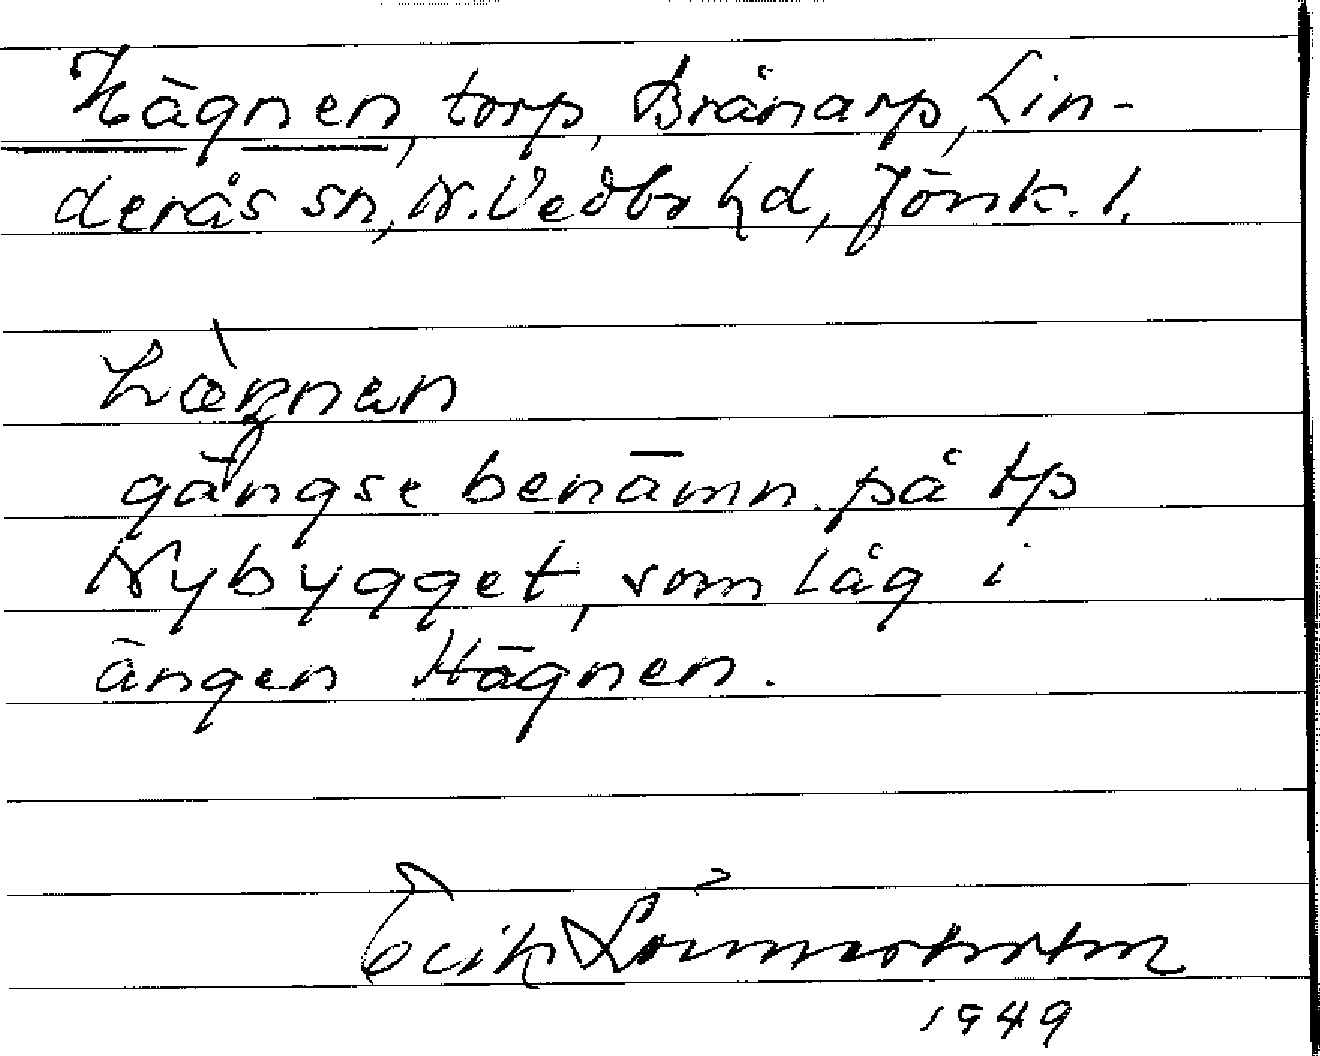 Hägnen, torp, Brånarp, Lin-
derås sn, N. Vedbo hd, Jönk. l.
gängse benämn. på tp
Nybygget, som låg i
ängen Hägnen.
Erik Lönnerholm
1949